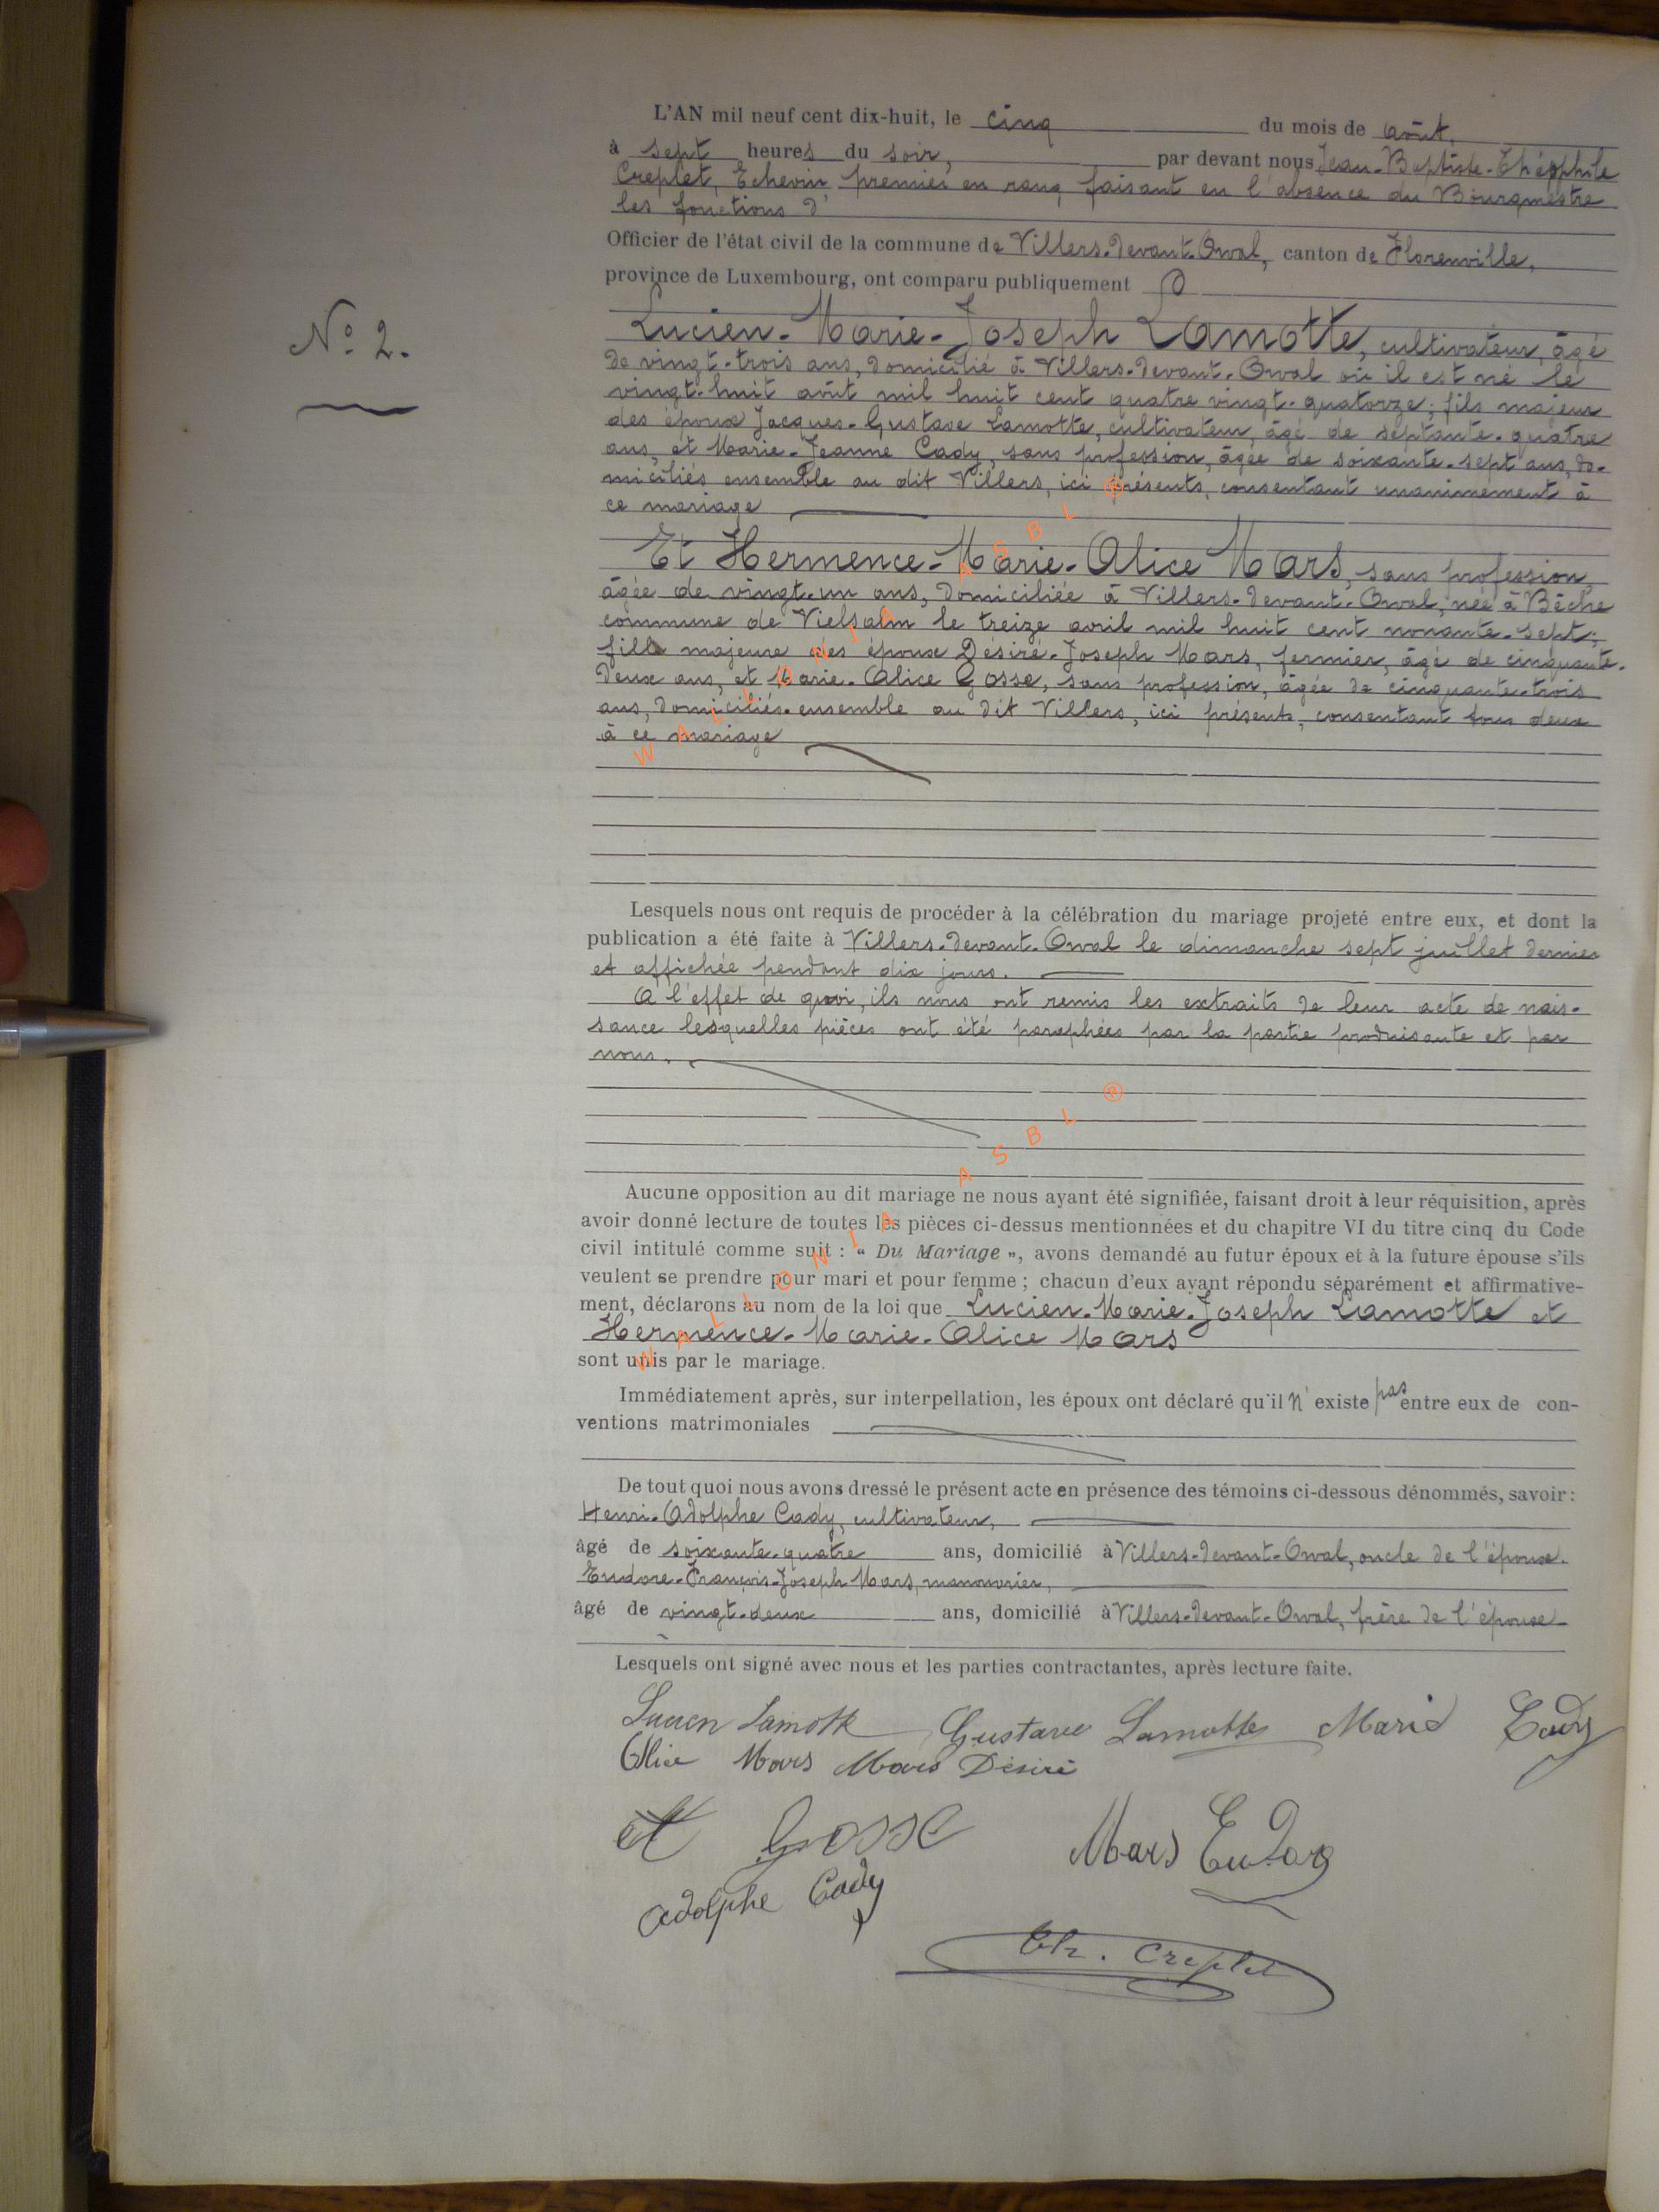 L'AN mil neuf cent dix-huit, le cinq du mois de août,
à sept heures du soir, par devant nous Jean-Baptiste-Théophile
Creplet, Echevin premier en rang faisant en l'absence du Bourgmestre
les fonctions d'
Officier de l'état civil de la commune de Villers-devant-Orval, canton de Florenville,
province de Luxembourg, ont comparu publiquement
N° 2.
Lucien-Marie-Joseph Lamotte, cultivateur, âgé
de vingt-trois ans, domicilié à Villers-devant-Orval où il est né le
vingt-huit août mil huit cent quatre vingt-quatorze; fils majeur
des époux Jacques-Gustave Lamotte, cultivateur, âgé de septante-quatre
ans, et Marie-Jeanne Cady, sans profession, âgée de soixante-sept ans, do-
miciliés ensemble au dit Villers, ici présents, consentant unanimement à
ce mariage
Et Hermence-Marie-Alice Mars, sans profession,
âgée de vingt-un ans, domiciliée à Villers-devant-Orval, née à Bêche
commune de Vielsalm le treize avril mil huit cent nonante-sept;
fille majeure des époux Désiré-Joseph Mars, fermier, âgé de cinquante-
deux ans, et Marie-Alice Gosse, sans profession, âgée de cinquante-trois
ans, domiciliés ensemble au dit Villers, ici présents, consentant tous deux
à ce mariage
WALLONIA ASBL ®
Lesquels nous ont requis de procéder à la célébration du mariage projeté entre eux, et dont la
publication a été faite à Villers-devant-Orval le dimanche sept juillet dernier
et affichée pendant dix jours.
A l'effet de quoi, ils nous ont remis les extraits de leur acte de nais-
sance lesquelles pièces ont été paraphées par la partie produisante et par
nous.
WALLONIA ASBL ®
Aucune opposition au dit mariage ne nous ayant été signifiée, faisant droit à leur réquisition, après
avoir donné lecture de toutes les pièces ci-dessus mentionnées et du chapitre VI du titre cinq du Code
civil intitulé comme suit : « Du Mariage », avons demandé au futur époux et à la future épouse s'ils
veulent se prendre pour mari et pour femme ; chacun d'eux ayant répondu séparément et affirmative-
ment, déclarons au nom de la loi que Lucien-Marie-Joseph Lamotte et
Hermence-Marie-Alice Mars
sont unis par le mariage.
Immédiatement après, sur interpellation, les époux ont déclaré qu'il n'existe pas entre eux de con-
ventions matrimoniales
De tout quoi nous avons dressé le présent acte en présence des témoins ci-dessous dénommés, savoir :
Henri-Adolphe Cady, cultivateur,
âgé de soixante-quatre ans, domicilié à Villers-devant-Orval, oncle de l'épouse.
Eudore-François-Joseph Mars, manouvrier,
âgé de vingt-deux ans, domicilié à Villers-devant-Orval, frère de l'épouse
Lesquels ont signé avec nous et les parties contractantes, après lecture faite.
Lucien Lamotte Gustave Lamotte Marie Cady
Alice Mars Mars Désiré
Gosse Mars Eudore
Adolphe Cady
Th. Creplet